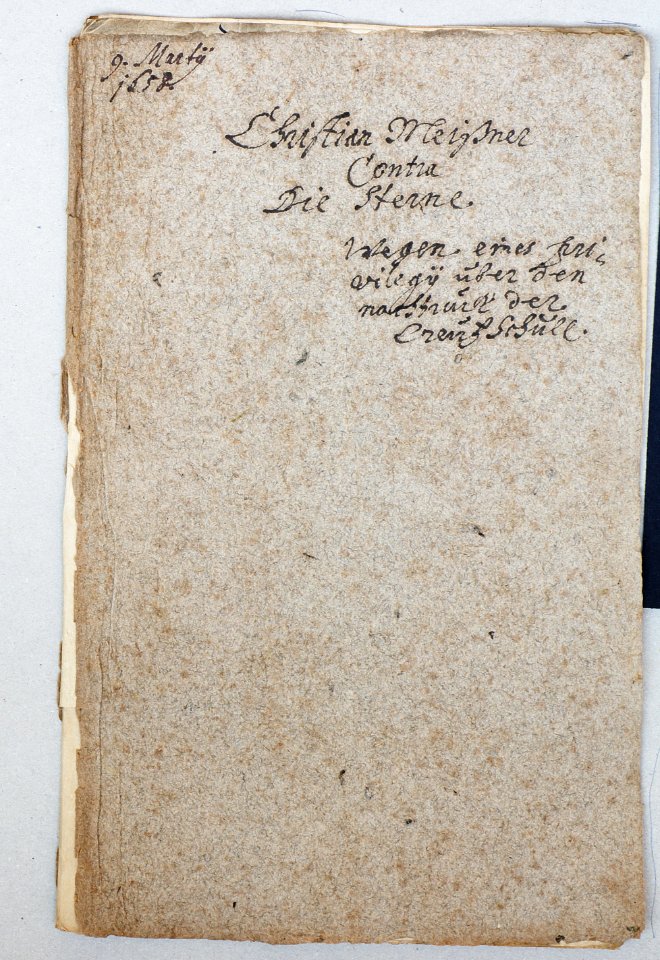 9. Martÿ
1658.
Christian Meißner
Contra
Die Sterne.
Wegen eines pri-
vilegÿ uber den
nachtruck der
Creutz Schule.